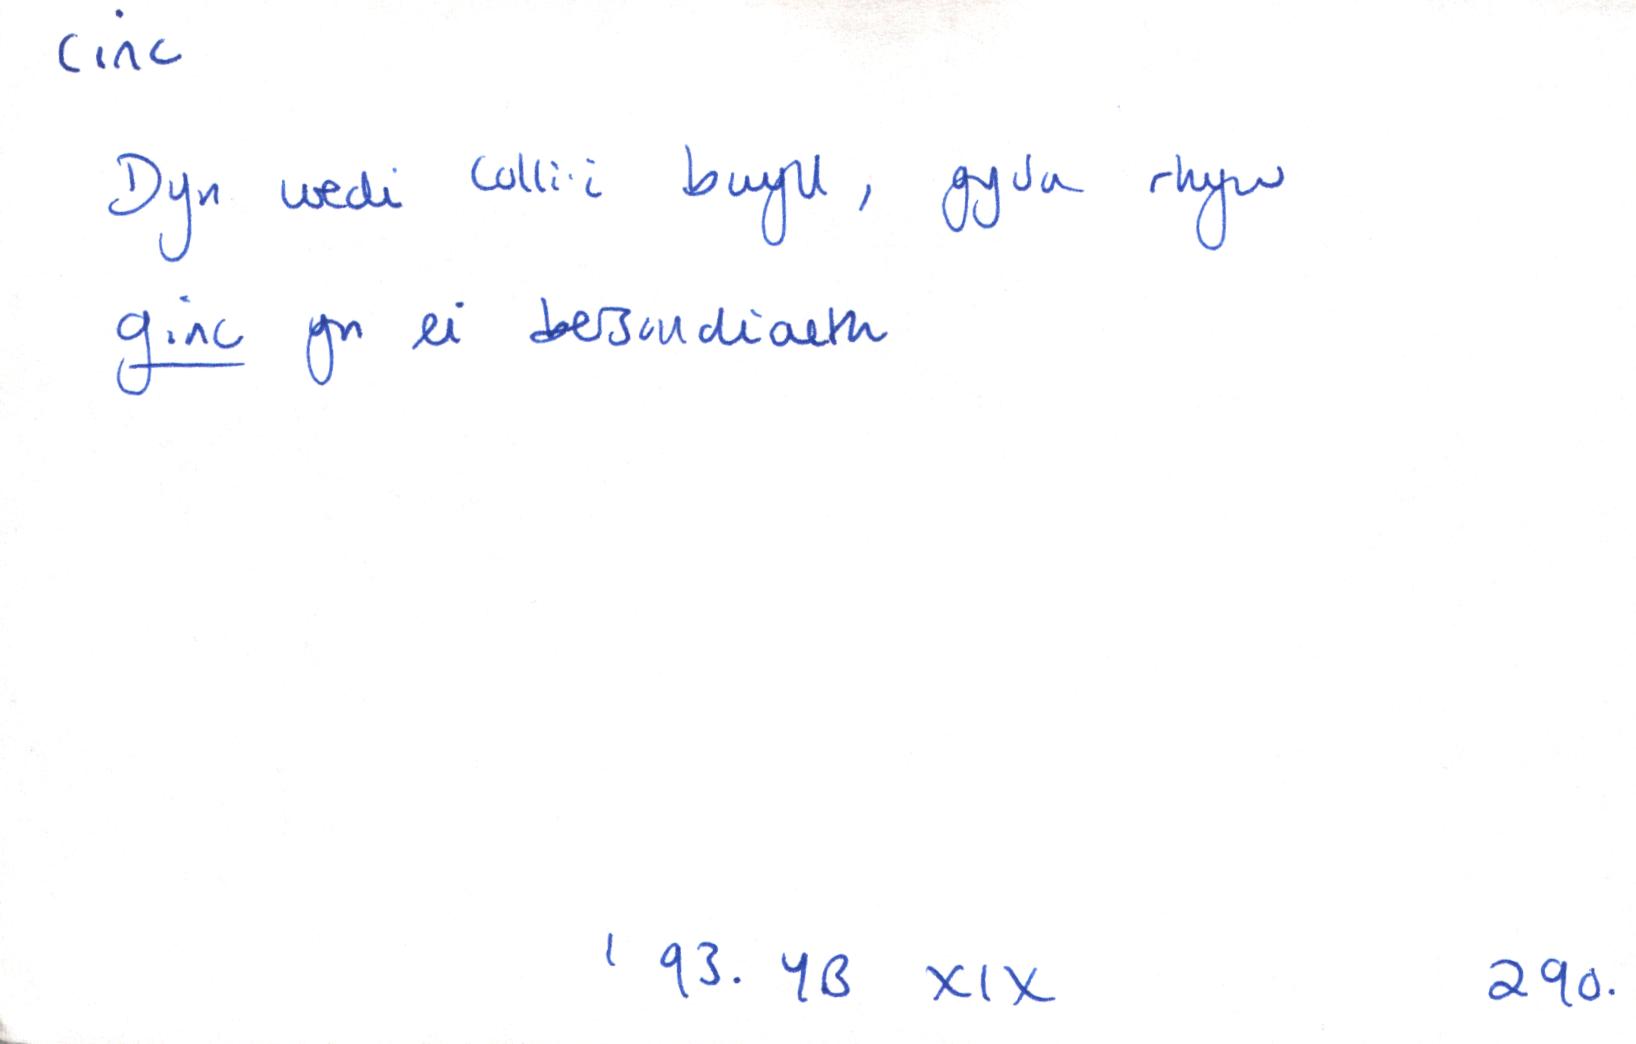 cinc
Dyn wedi colli'i bwyll, gyda rhyw
ginc yn ei bersondiaeth
'93. YB XIX 290.